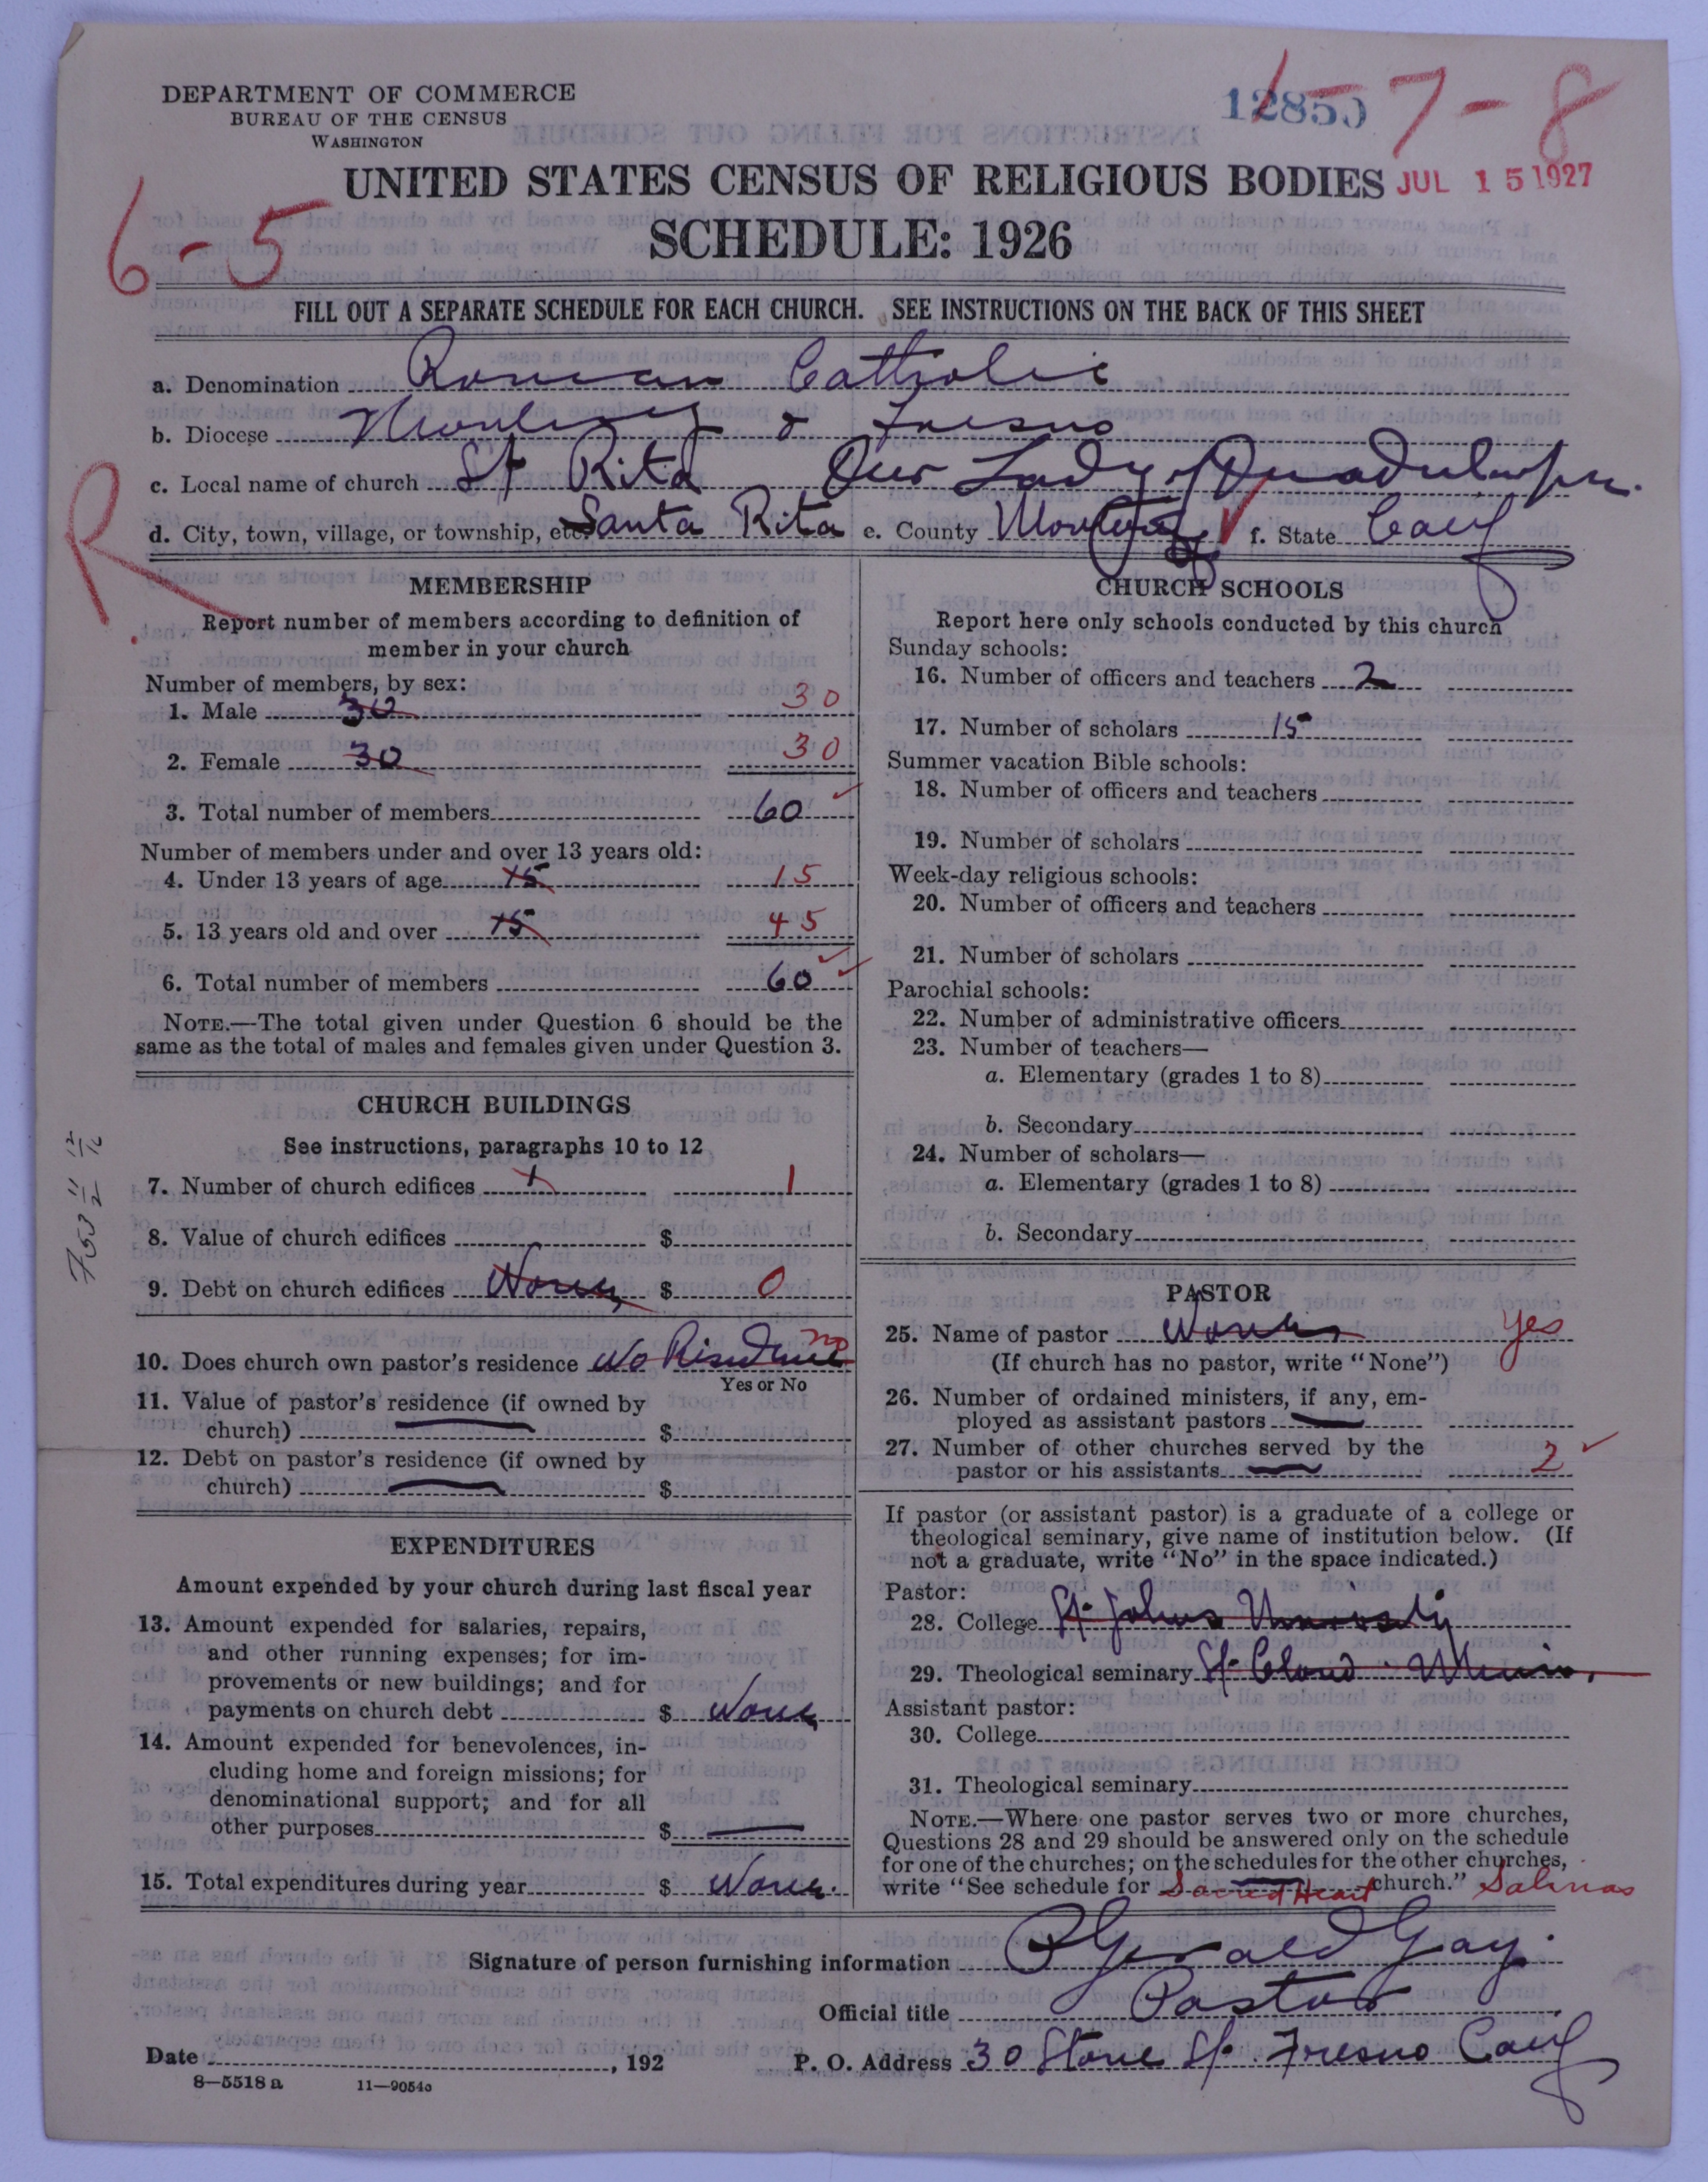 DEPARTMENT OF COMMERCE
BUREAU OF THE CENSUS
WASHINGTON
12850
7-8
UNITED STATES CENSUS OF RELIGIOUS BODIES
JUL 15 1927
6-5
SCHEDULE: 1926
FILL OUT A SEPARATE SCHEDULE FOR EACH CHURCH. SEE INSTRUCTIONS ON THE BACK OF THIS SHEET
a. Denomination Roman Catholic
b. Diocese Monterey & Fresno
c. Local name of church St Rita Our Lady of
R
d. City, town, village, or township, etc. Santa Rita e. County Monterey f. State Calif
MEMBERSHIP
Report number of members according to definition of
member in your church
Number of members, by sex:
1. Male 30 30
2. Female 30 30
3. Total number of members 60
Number of members under and over 13 years old:
4. Under 13 years of age 15 15
5. 13 years old and over 15 45
6. Total number of members 60
NOTE.—The total given under Question 6 should be the
same as the total of males and females given under Question 3.
CHURCH BUILDINGS
See instructions, paragraphs 10 to 12
7. Number of church edifices 1 1
8. Value of church edifices $
9. Debt on church edifices None $ 0
10. Does church own pastor's residence No Residence no
Yes or No
11. Value of pastor's residence (if owned by
church) $
12. Debt on pastor's residence (if owned by
church) $
EXPENDITURES
Amount expended by your church during last fiscal year
13. Amount expended for salaries, repairs,
and other running expenses; for im-
provements or new buildings; and for
payments on church debt $ None
14. Amount expended for benevolences, in-
cluding home and foreign missions; for
denominational support; and for all
other purposes $
15. Total expenditures during year $ None
CHURCH SCHOOLS
Report here only schools conducted by this church
Sunday schools:
16. Number of officers and teachers 2
17. Number of scholars 15
Summer vacation Bible schools:
18. Number of officers and teachers
19. Number of scholars
Week-day religious schools:
20. Number of officers and teachers
21. Number of scholars
Parochial schools:
22. Number of administrative officers
23. Number of teachers—
a. Elementary (grades 1 to 8)
b. Secondary
24. Number of scholars—
a. Elementary (grades 1 to 8)
b. Secondary
PASTOR
25. Name of pastor None Yes
(If church has no pastor, write "None")
26. Number of ordained ministers, if any, em-
ployed as assistant pastors
27. Number of other churches served by the
pastor or his assistants 2
If pastor (or assistant pastor) is a graduate of a college or
theological seminary, give name of institution below. (If
not a graduate, write "No" in the space indicated.)
Pastor:
28. College St. Johns University
29. Theological seminary St. Cloud Minn.
Assistant pastor:
30. College
31. Theological seminary
NOTE.—Where one pastor serves two or more churches,
Questions 28 and 29 should be answered only on the schedule
for one of the churches; on the schedules for the other churches,
write "See schedule for Sacred Heart church." Salinas
Signature of person furnishing information P Gerald Gay.
Official title Pastor
Date , 192
P. O. Address 30 Stone St. Fresno Calif
8—5518 a 11—9054a